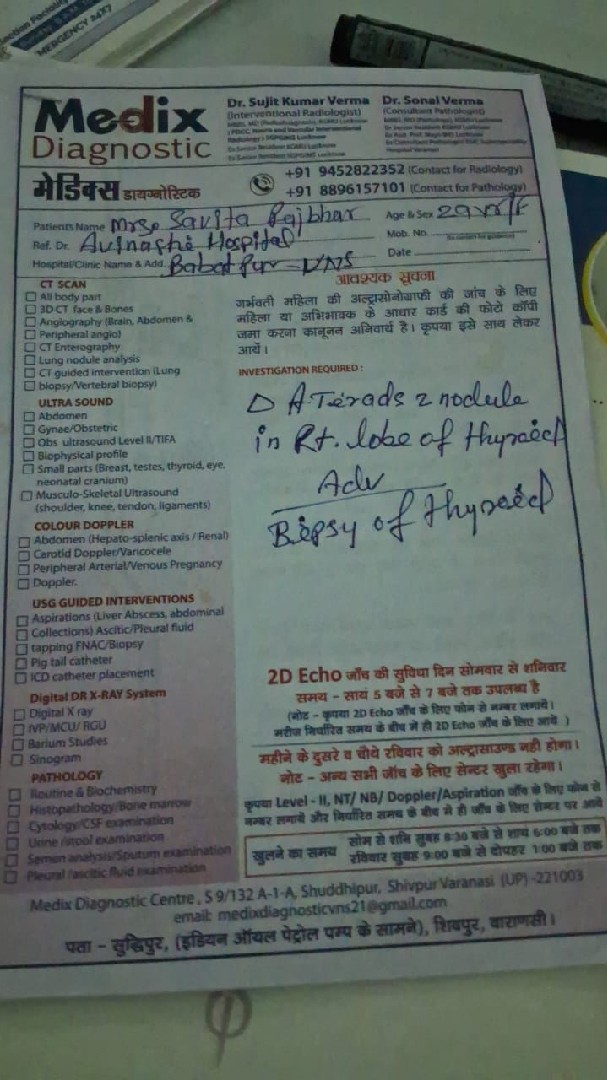 EMERGENCY 24X7
Medix
Diagnostic
मेडिक्स डायग्नोस्टिक
Dr. Sujit Kumar Verma
(Interventional Radiologist)
Dr. Sonal Verma
(Consultant Pathologist)
+91 9452822352 (Contact for Radiology)
+91 8896157101 (Contact for Pathology)
Patients Name Mrs. Savita Rajbhar Age & Sex 29 yr/F
Ref. Dr. Avinashi Hospital Mob. No.
Hospital/Clinic Name & Add. Babat pur VNS Date
CT SCAN
All body part
3D-CT face & Bones
Angiography (Brain, Abdomen &
Peripheral angio)
CT Enterography
Lung nodule analysis
CT guided intervention (Lung
biopsy/Vertebral biopsy)
ULTRA SOUND
Abdomen
Gynee/Obstetric
Obs ultrasound Level II/TIFA
Biophysical profile
Small parts (Breast, testes, thyroid, eye,
neonatal cranium)
Musculo-Skeletal Ultrasound
(shoulder, knee, tendon, ligaments)
COLOUR DOPPLER
Abdomen (Hepato-splenic axis / Renal)
Carotid Doppler/Varicocele
Peripheral Arterial/Venous Pregnancy
Doppler.
USG GUIDED INTERVENTIONS
Aspirations (Liver Abscess, abdominal
Collections) Ascitic/Pleural fluid
tapping FNAC/Biopsy
Pig tail catheter
ICD catheter placement
Digital DR X-RAY System
Digital X ray
IVP/MCU/ RGU
Barium Studies
Sinogram
PATHOLOGY
Routine & Biochemistry
Histopathology/Bone marrow
Cytology/CSF examination
Urine /stool examination
Semen analysis/Sputum examination
Pleural /ascitic fluid examination
आवश्यक सूचना
गर्भवती महिला की अल्ट्रासोनोग्राफी की जांच के लिए
महिला या अभिभावक के आधार कार्ड की फोटो कॉपी
जमा करना कानूनन अनिवार्य है। कृपया इसे साथ लेकर
आयें।
INVESTIGATION REQUIRED :
A Tirads 2 nodule
in Rt. lobe of thyroid
Adv
Biopsy of thyroid
2D Echo जाँच की सुविधा दिन सोमवार से शनिवार
समय - सायं 5 बजे से 7 बजे तक उपलब्ध है
(नोट - कृपया 2D Echo जाँच के लिए फोन से नम्बर लगायें।
मरीज निर्धारित समय के बीच में ही 2D Echo जाँच के लिए आयें )
महीने के दुसरे व चौथे रविवार को अल्ट्रासाउण्ड नही होगा।
नोट - अन्य सभी जाँच के लिए सेन्टर खुला रहेगा।
कृपया Level - II, NT/ NB/ Doppler/Aspiration जाँच के लिए फोन से
नम्बर लगायें और निर्धारित समय के बीच में ही जाँच के लिए सेन्टर पर आयें
खुलने का समय
सोम से शनि सुबह 8:30 बजे से सायं 6:00 बजे तक
रविवार सुबह 9:00 बजे से दोपहर 1:00 बजे तक
Medix Diagnostic Centre , S 9/132 A-1-A, Shuddhipur, Shivpur Varanasi (UP) -221003
email: medixdiagnosticvns21@gmail.com
पता - सुद्धिपुर, (इंडियन ऑयल पेट्रोल पम्प के सामने), शिवपुर, वाराणसी।